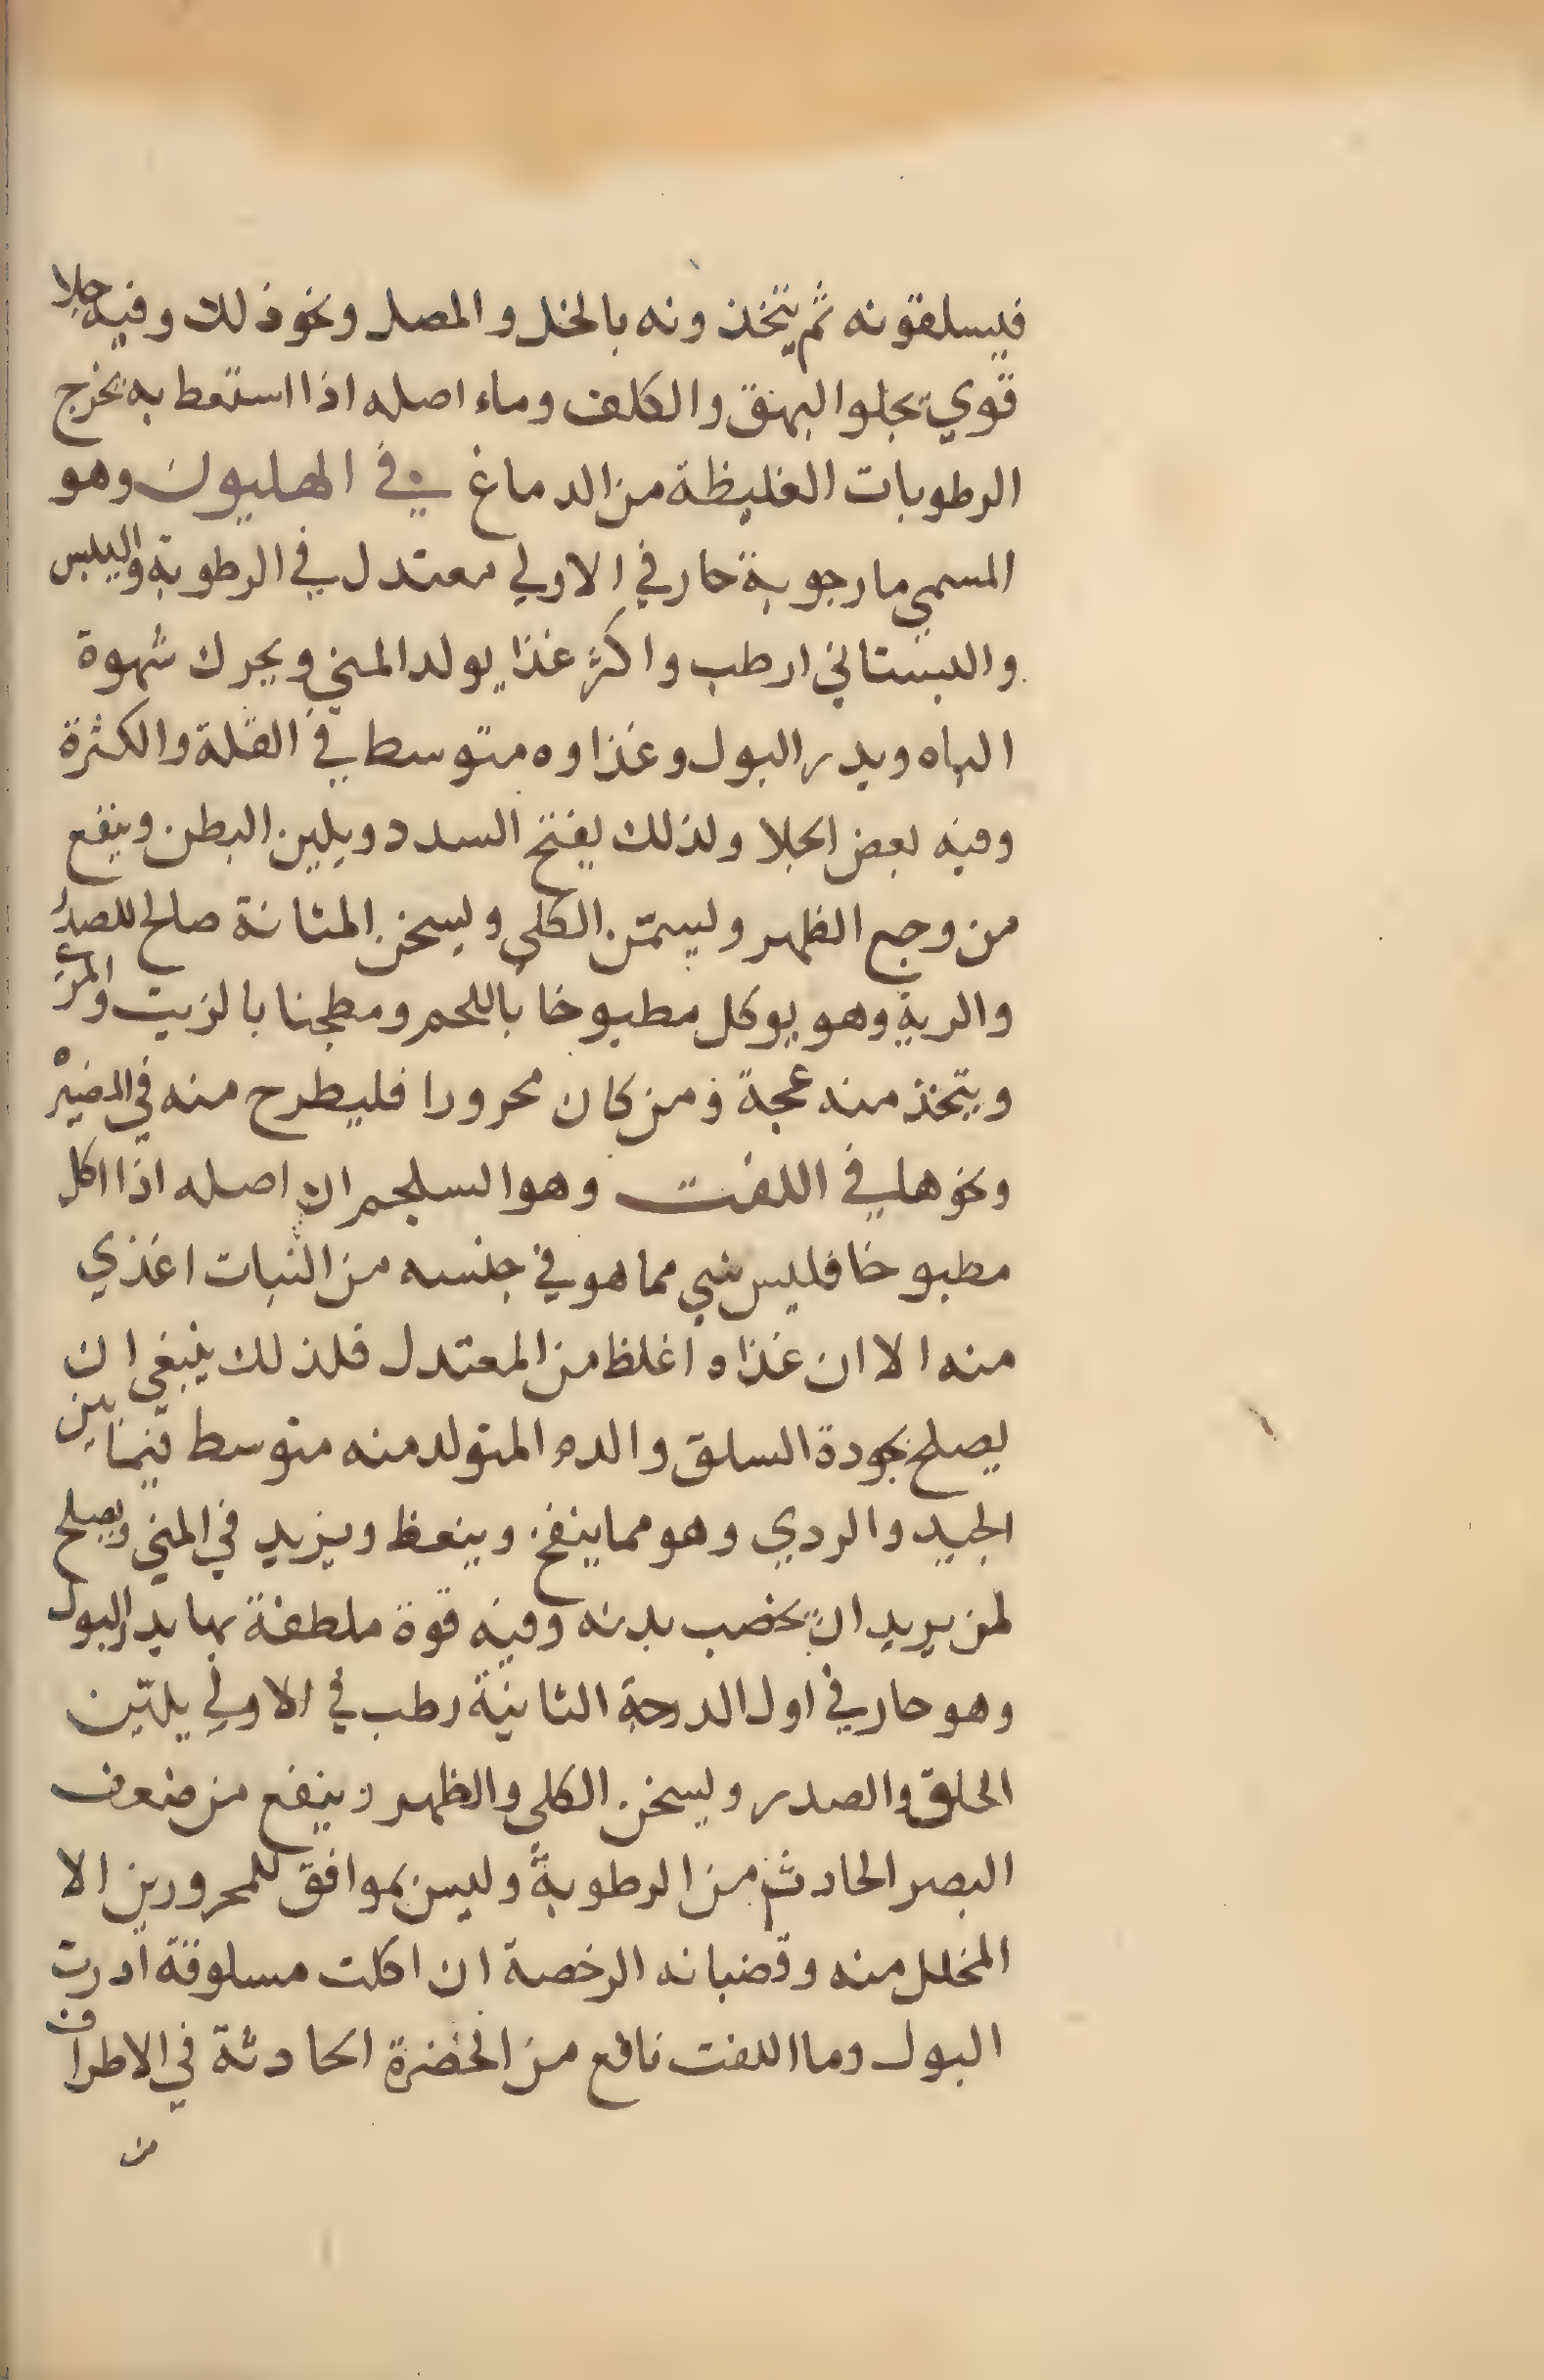 فيسلقونه ثم يتخذونه بالخل والمصل ونحو ذلك وفيه جلا
قوي يجلوا البهق والكلف وماء اصله اذا استعط به يخرج
الرطوبات الغليظة من الدماغ في الهليون وهو
المسمي مارجوبة حار في الاولي معتدل في الرطوبة واليبس
والبستاني ارطب واكثر غذا يولد المني ويحرك شهوة
الباه ويدر البول وغذاوه متوسط في القلة والكثرة
وفيه بعض الجلا ولذلك يفتح السدد ويلين البطن وينفع
من وجع الظهر ويسمّن الكلي ويسخن المثانة صالح للصدر
والرية وهو يوكل مطبوخا باللحم ومطجنا بالزيت والمري
ويتخذ منه عجة ومن كان محرورا فليطرح منه في المضيرة
ونحوها في اللفت وهو السلجم ان اصله اذا اكل
مطبوخا فليس شي مما هو في جنسه من النبات اغذي
منه الا ان غذاه اغلظ من المعتدل فلذلك ينبغي ان
يصلح بجودة السلق والدم المتولد منه متوسط فيما بين
الجيد والردي وهو مما ينفخ وينعظ ويزيد في المني ويصلح
لمن يريد ان يخصب بدنه وفيه قوة ملطفة بها يدر البول
وهو حار في اول الدرجة الثانية رطب في الاولي يليّن
الحلق والصدر ويسخن الكلي والظهر وينفع من ضعف
البصر الحادث من الرطوبة وليس بموافق للمحرورين الا
المخلل منه وقضبانه الرخصة ان اكلت مسلوقة ادرت
البول وما اللفت نافع من الخضرة الحادثة في الاطراف
من